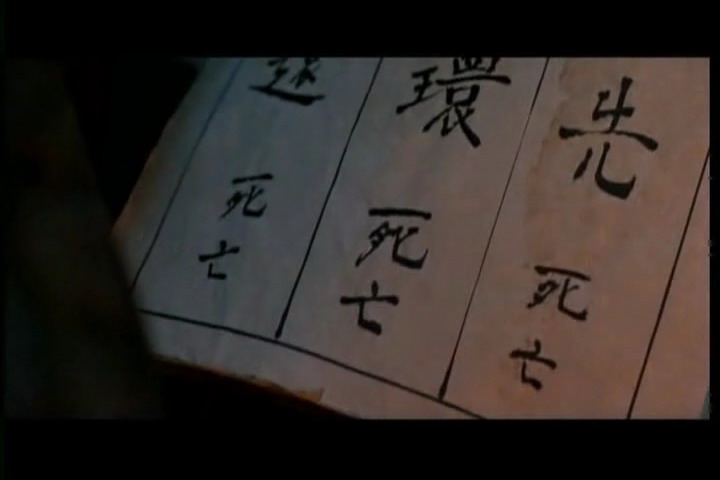 先 死亡
環 死亡
死亡